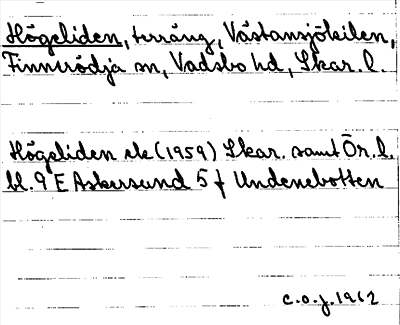 Högeliden, terräng, Västansjökilen,
Finnerödja sn, Vadsbo hd, Skar. l.
Högeliden ek (1959) Skar. samt Ör. l.
bl. 9 E Askersund 5 f Undenebotten
c.o.j. 1962